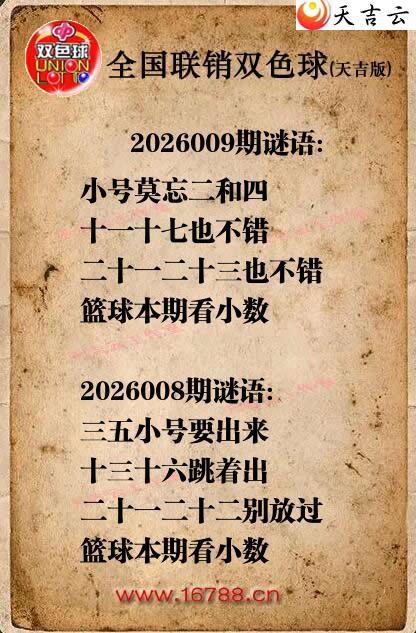 天吉云
双色球
UNION
LOTTO
全国联销双色球(天吉版)
2026009期谜语:
小号莫忘二和四
十一十七也不错
二十一二十三也不错
篮球本期看小数
2026008期谜语:
三五小号要出来
十三十六跳着出
二十一二十二别放过
篮球本期看小数
www.16788.cn